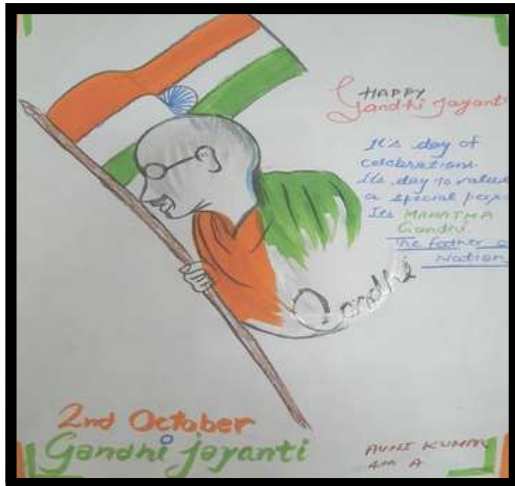 HAPPY
Gandhi Jayanti
It's day of
celebrations.
Its day to value
a special
Its MAHATMA
Gandhi.
The father
Nation
Gandhi
2nd October
Gandhi jayanti
AVNI KUMAR
4th A